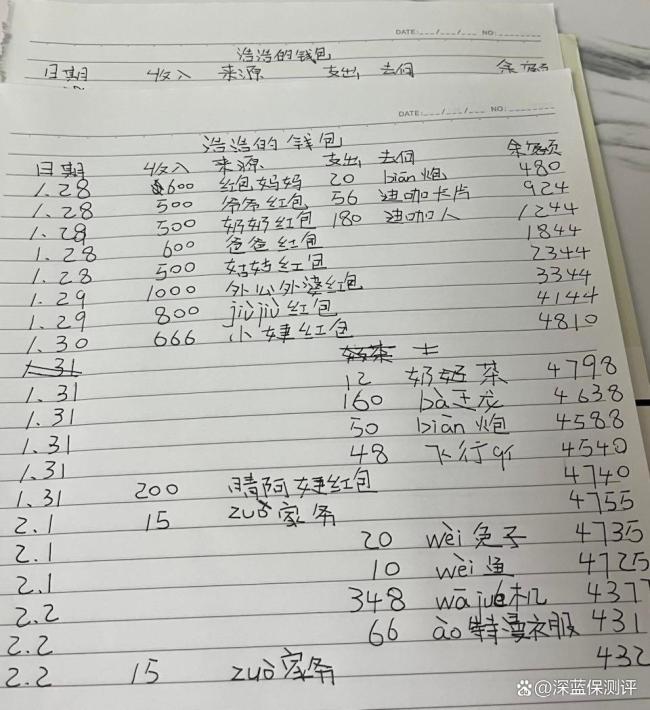 DATE:___/___/___ NO:________
浩浩的钱包
日期 收入 来源 支出 去向 余额
DATE:___/___/___ NO:________
浩浩的钱包
日期 收入 来源 支出 去向 余额
1.28 600 红包妈妈 20 biān炮 480
1.28 500 爷爷红包 56 迪咖卡片 924
1.28 500 奶奶红包 180 迪咖人 1244
1.28 600 爸爸红包 1844
1.28 500 姑姑红包 2344
1.29 1000 外公外婆红包 3344
1.29 800 jiùjiù红包 4144
1.30 666 小婕红包 4810
1.31
1.31 12 奶奶菜 4798
1.31 160 bà王龙 4638
1.31 50 biān炮 4588
1.31 48 飞行qí 4540
1.31 200 晴阿姨红包 4740
2.1 15 zuò家务 4755
2.1 20 wèi兔子 4735
2.1 10 wèi鱼 4725
2.2 348 wājué机 437
2.2 66 ào特漫衣服 431
2.2 15 zuò家务 432
深蓝保测评